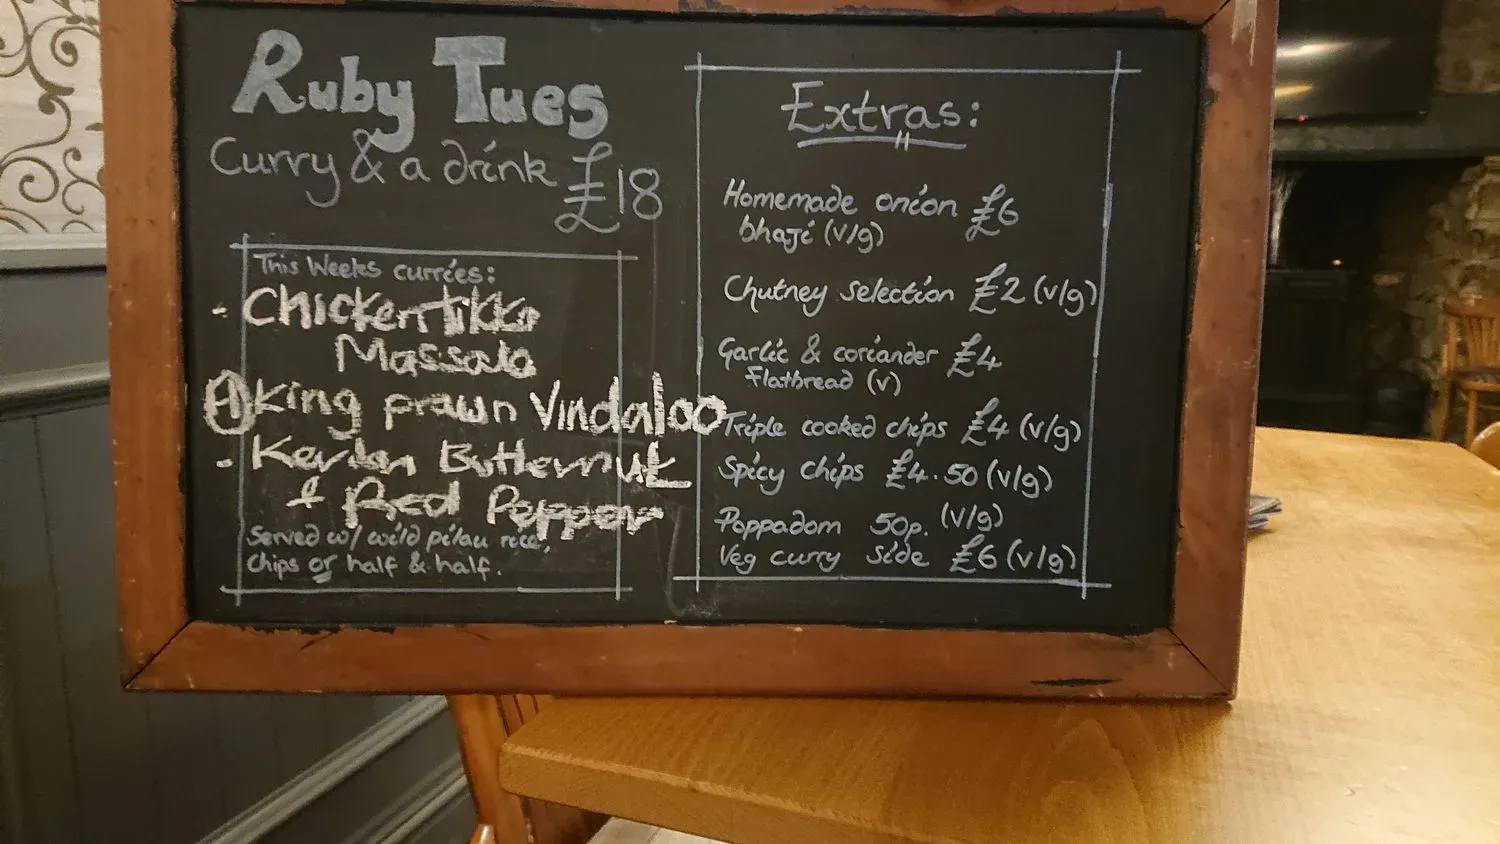 Ruby Tues
Curry & a drink £18
This Weeks curries:
- Chicken tikka
Massala
King prawn Vindaloo
- Keralan Butternut
& Red Pepper
Served w/ wild pilau rice,
chips or half & half.
Extras:
Homemade onion £6
bhaji (v/g)
Chutney selection £2 (v/g)
Garlic & coriander £4
flatbread (v)
Triple cooked chips £4 (v/g)
Spicy chips £4.50 (v/g)
Poppadom 50p. (v/g)
Veg curry side £6 (v/g)